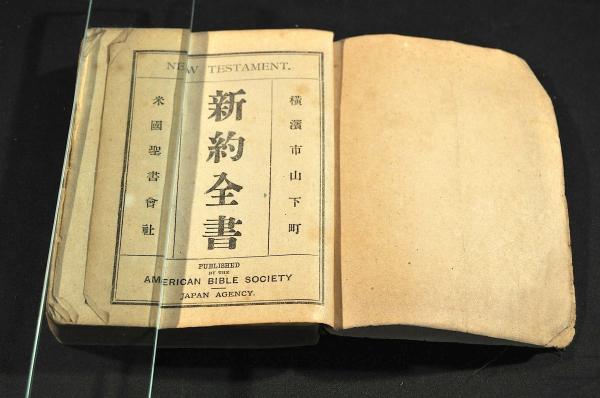 NEW TESTAMENT.
橫濱市山下町
新約全書
米國聖書會社
PUBLISHED
BY THE
AMERICAN BIBLE SOCIETY
JAPAN AGENCY.